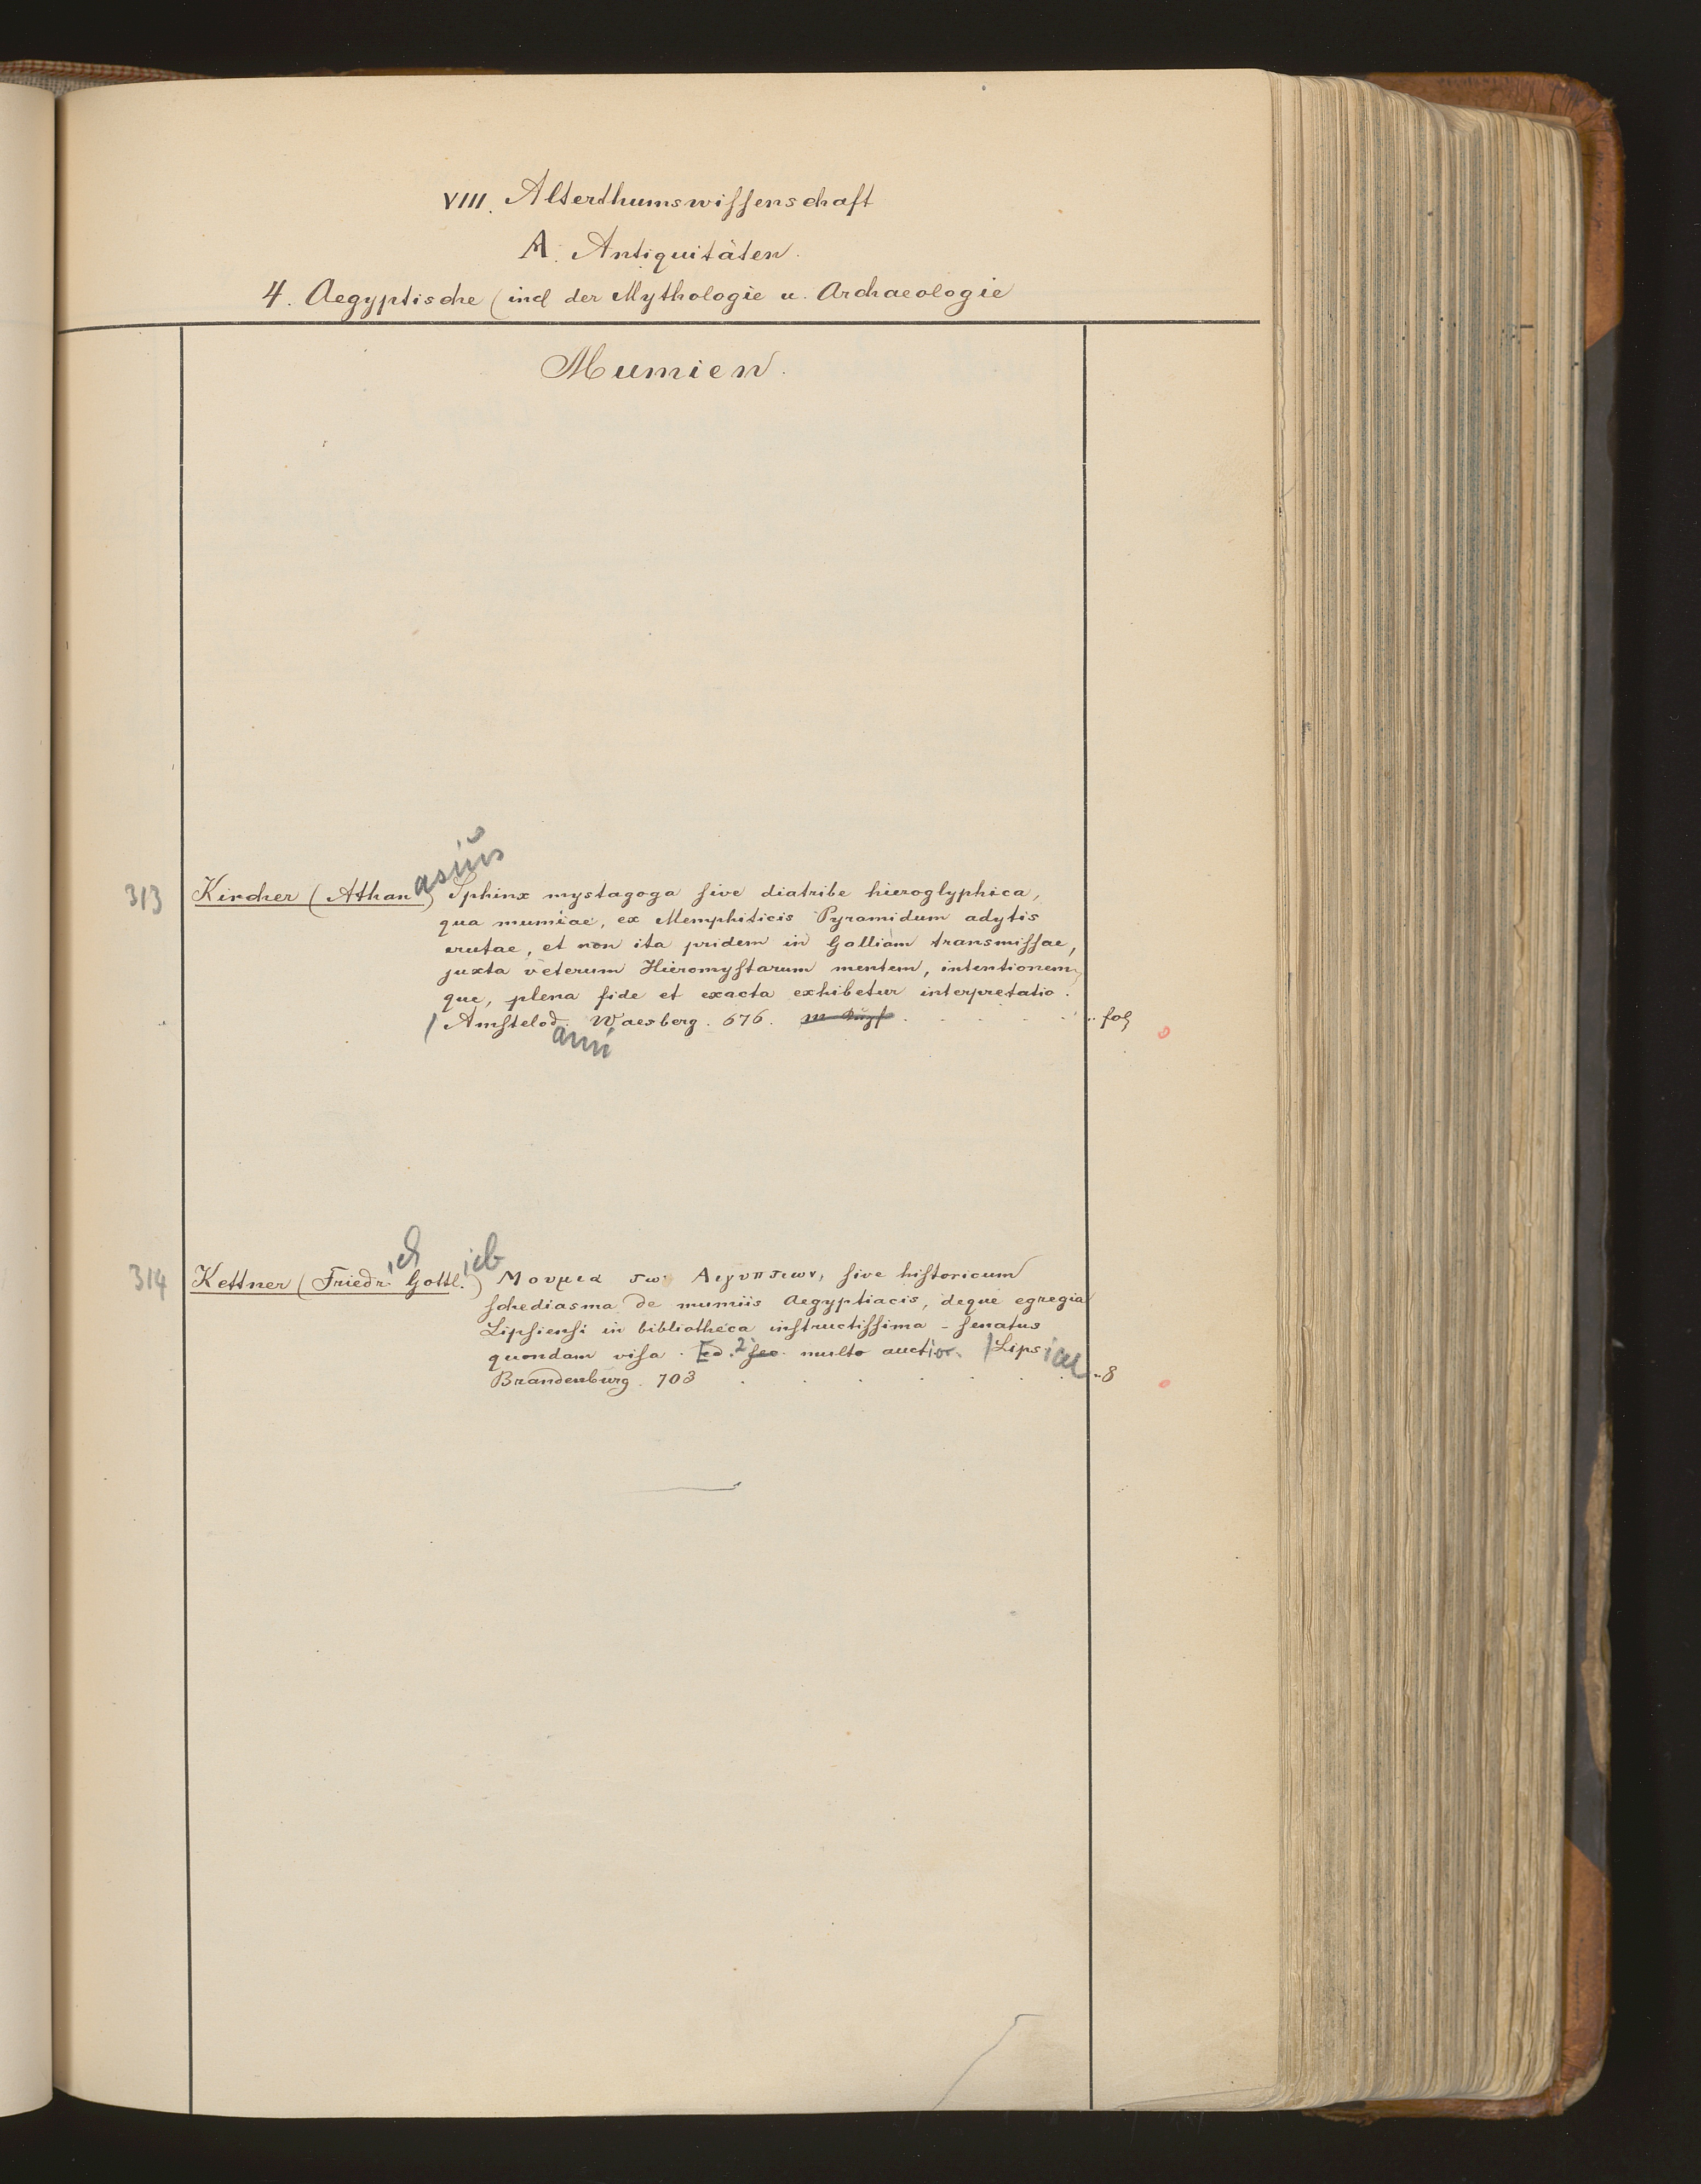 VIII. Alterthumswissenschaft
A. Antiquitäten.
4. Aegyptische (incl der Mythologie u. Archaeologie
Mumien.
313 Kircher (Athanasius) Sphinx mystagoga sive diatribe hieroglyphica,
qua mumiae, ex Memphiticis Pyramidum adytis
erutae, et non ita pridem in Galliam transmissae,
juxta veterum Hieromystarum mentem, intentionem
que, plena fide et exacta exhibetur interpretatio.
/ Amstelodami Waesberg. 676. m Kupf . . . . . fol
314 Kettner (Friedrich Gottlieb) Μουμια τω Αιγυπτιων, sive historicum
schediasma de mumiis Aegyptiacis, deque egregia
Lipsiensi in bibliotheca instructissima - senatus
quondam visa. Ed. 2 sec. multo auctior. / Lipsiae
Brandenburg. 703 . . . . . . 8